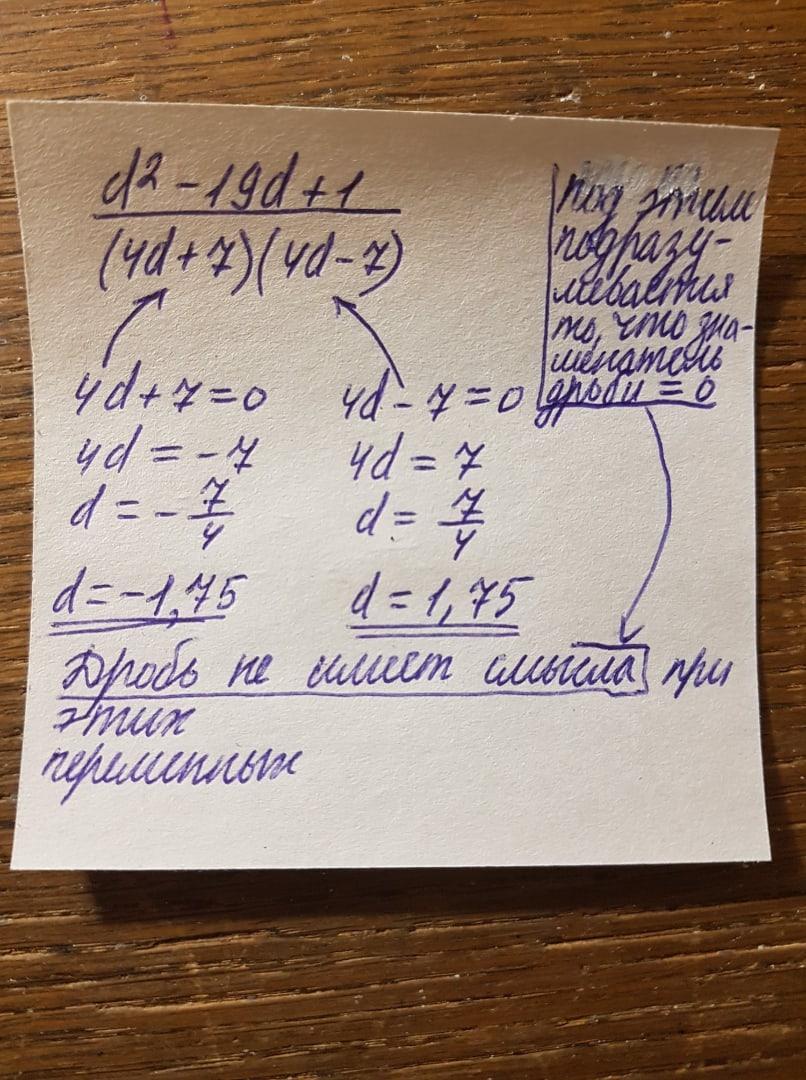 d² - 19d + 1
(4d + 7)(4d - 7)
под этим
подразу-
мевается
то, что зна-
менатель
дроби = 0
4d + 7 = 0
4d = -7
d = - 7/4
d = -1,75
4d - 7 = 0
4d = 7
d = 7/4
d = 1,75
Дробь не имеет смысла при
этих
переменных